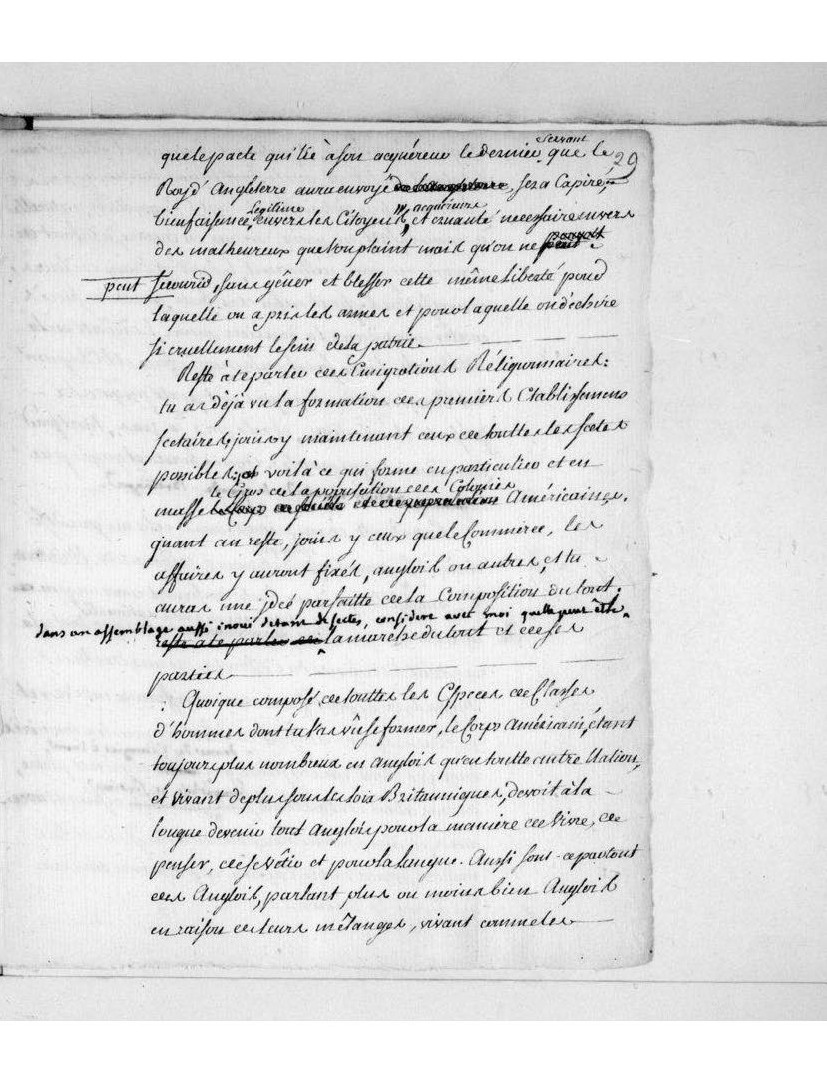 servant
29
que le pacte qui lie à son acquéreur le dernier que le
Roy d'Angleterre aura envoyé, sera expiré;
légitime acquéreurs
bienfaisance, envers les Citoyens, et cruauté nécessaire envers
pouvoit
des malheureux que l'on plaint mais qu'on ne peut
peut secourir, sans gêner et blesser cette même liberté pour
laquelle on a pris les armes et pour laquelle on déchire
si cruellement le sein de la patrie.
Reste à te parler des Emigrations Réligionnaires:
tu as déjà vu la formation des premiers Etablissemens
sectaires, joins y maintenant ceux de touttes les sectes
possibles; voilà ce qui forme en particulier et en
le Gros de la population des Colonies
masse Américaines.
quant au reste, joins y ceux que le Commerce, les
affaires y auront fixés, anglois ou autres, et tu
auras une jdée parfaitte de la Composition du tout.
dans un assemblage aussi inoui de tant de sectes, considere avec moi quelle peut être
reste a te parler de la marche du tout et de ses
parties
Quoique composé de touttes les Especes de Classes
d'hommes dont tu l'as vû se former, le Corps Américain, étant
toujours plus nombreux en Anglois qu'en toutte autre Nation,
et vivant de plus sous les loix Britanniques, devoit à la
longue devenir tout Anglois pour la manière de vivre, de
penser, de se vêtir et pour la langue. Aussi sont-ce partout
des Anglois, parlant plus ou moins bien Anglois
en raison de leurs mêlanges, vivant comme les